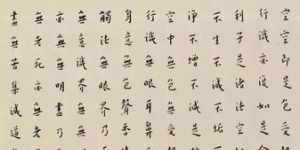 空空即是色受
行識亦復如是
利子是諸法空
不生不滅不垢
淨不增不減是
空中無色無受
行識無眼耳鼻
身意無色聲香
觸法無眼界乃
無意識界無無
亦無無明盡乃
無老死亦無老
盡無苦集滅道